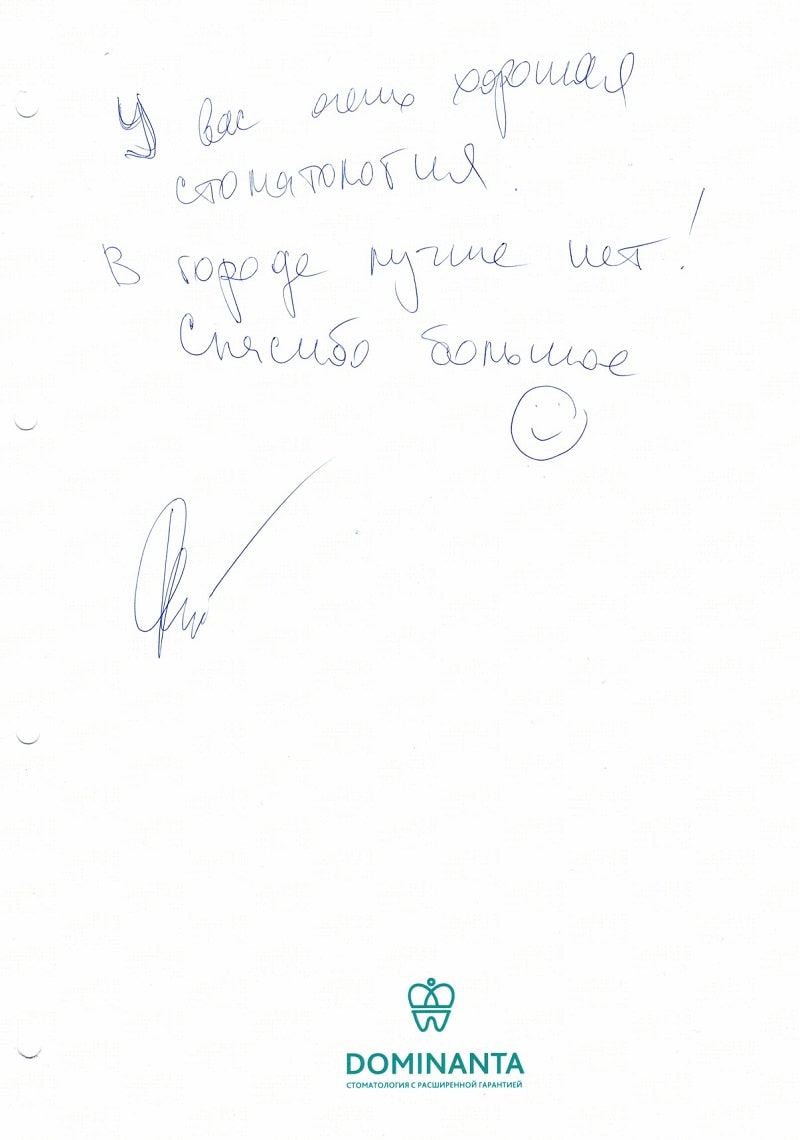 У вас очень хорошая
стоматология.
В городе лучше нет!
Спасибо большое
DOMINANTA
СТОМАТОЛОГИЯ С РАСШИРЕННОЙ ГАРАНТИЕЙ